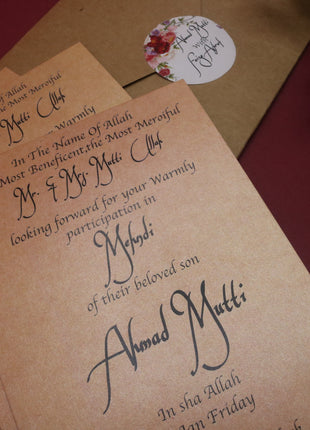 Ahmad Mutti
With
Mutti Ullah
your Warmly
In The Name Of Allah
Most Beneficent,the Most Merciful
Mr. & Mrs. Mutti Ullah
looking forward for your Warmly
participation in
Mehndi
of their beloved son
Ahmad Mutti
In sha Allah
Jan Friday